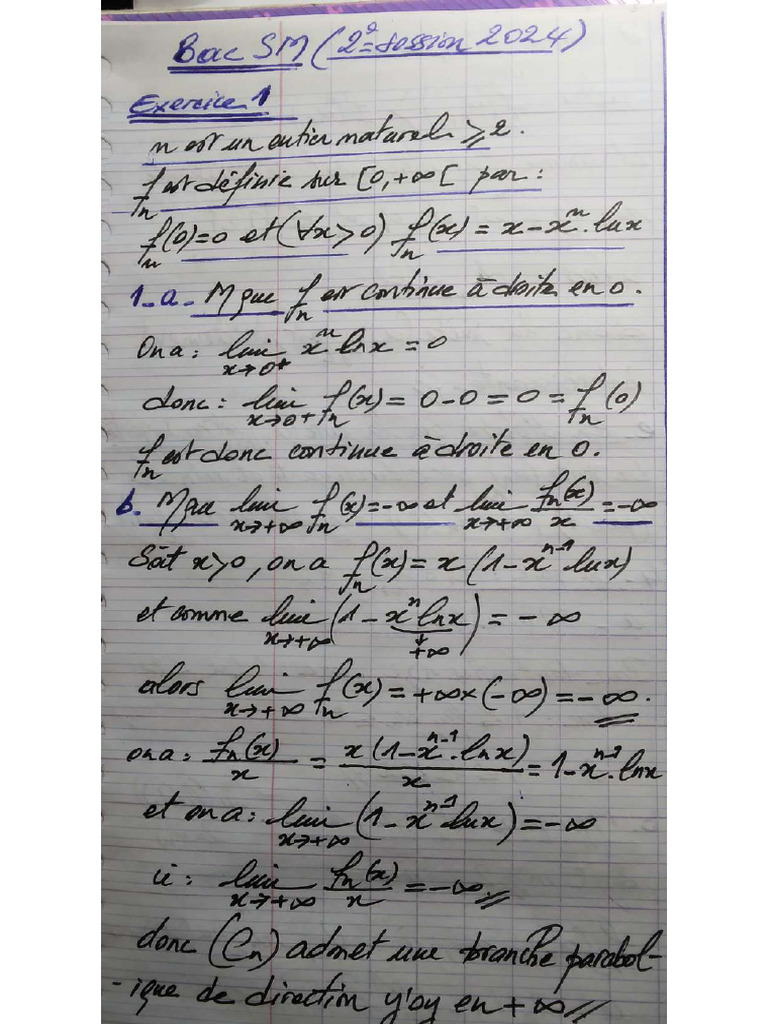 Bac SM (2è session 2024)
Exercice 1
n est un entier naturel ≥ 2.
f_n est définie sur [0,+∞[ par :
f_n(0)=0 et (∀x>0) f_n(x) = x-x^n.lnx
1-a- Mque f_n est continue à droite en 0.
On a: lim_{x→0+} x^n lnx = 0
donc: lim_{x→0+} f_n(x) = 0-0 = 0 = f_n(0)
f_n est donc continue à droite en 0.
b. Mque lim_{x→+∞} f_n(x) = -∞ et lim_{x→+∞} f_n(x)/x = -∞
Soit x>0, on a f_n(x) = x(1-x^{n-1} lnx)
et comme lim_{x→+∞} (1-x^n lnx) = -∞
↓
+∞
alors lim_{x→+∞} f_n(x) = +∞×(-∞) = -∞.
on a: f_n(x)/x = x(1-x^{n-1}.lnx)/x = 1-x^{n-1}.lnx
et on a: lim_{x→+∞} (1-x^{n-1} lnx) = -∞
ie: lim_{x→+∞} f_n(x)/x = -∞ //
donc (C_n) admet une branche parabol-
-ique de direction y'oy en +∞ //